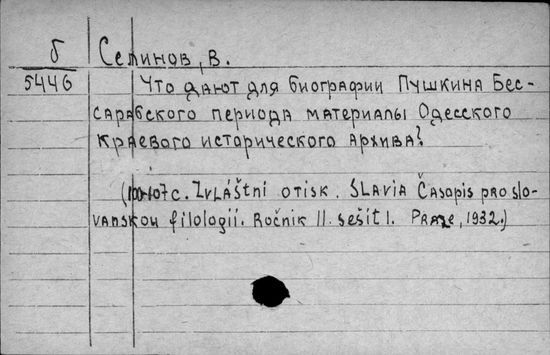 б Селинов, В.
5446 Что дают для биографии Пушкина Бес-
сарабского периода материалы Одесского
краевого исторического архива?
(100-107 с. Zvláštni otisk. Slavia Časopis pro slo-
vanskou filologii. Ročnik II. sešit I. Praze, 1932.)